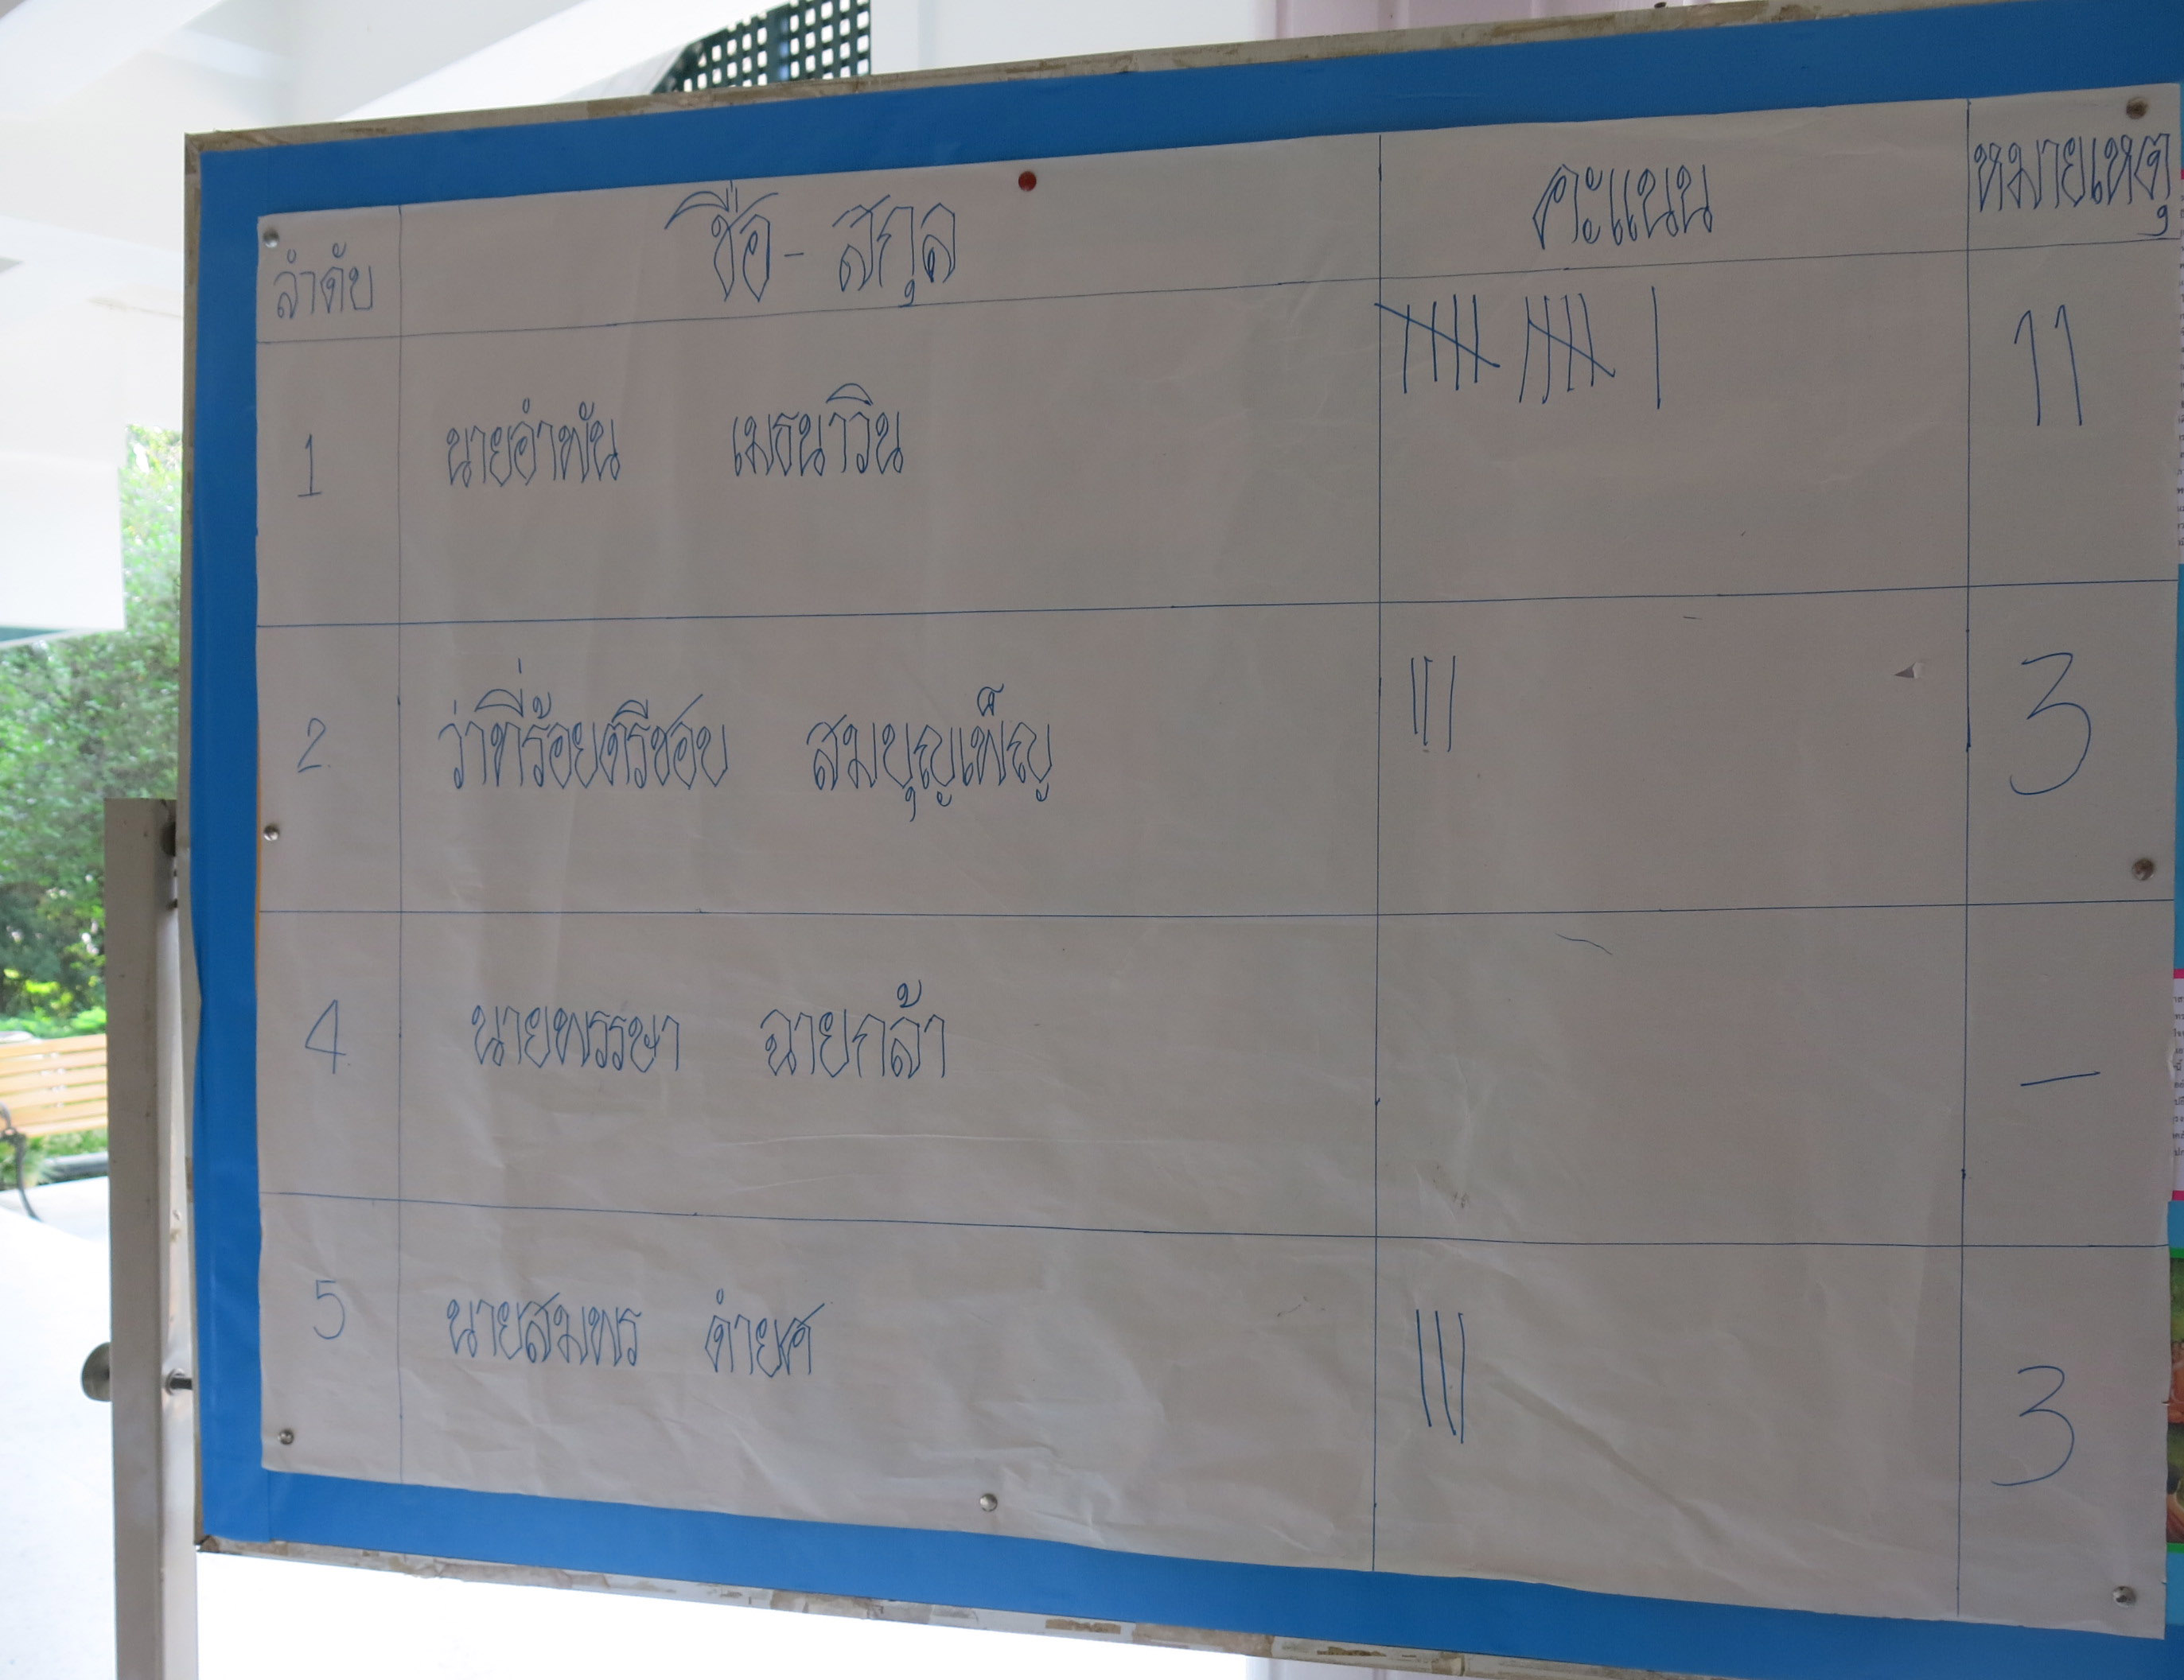 ลำดับ ชื่อ - สกุล คะแนน หมายเหตุ
1 นายอำพัน เมธนาวิน 11
2. ว่าที่ร้อยตรีชอบ สมบุญเพ็ญ 3
4 นายพรรษา ฉายกล้า –
5 นายสมพร ดำยศ 3